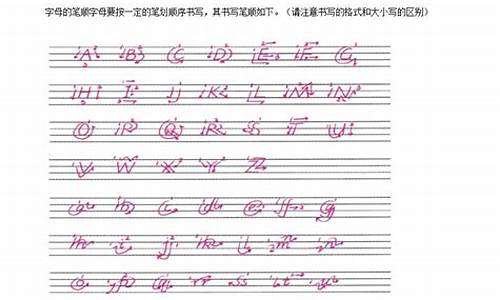 字母的笔顺字母要按一定的笔划顺序书写，其书写笔顺如下。（请注意书写的格式和大小写的区别）
A B C D E F G
H I J K L M N
O P Q R S T U
V W X Y Z
a b c d e f g
h i j k l m n
o p q r s t u